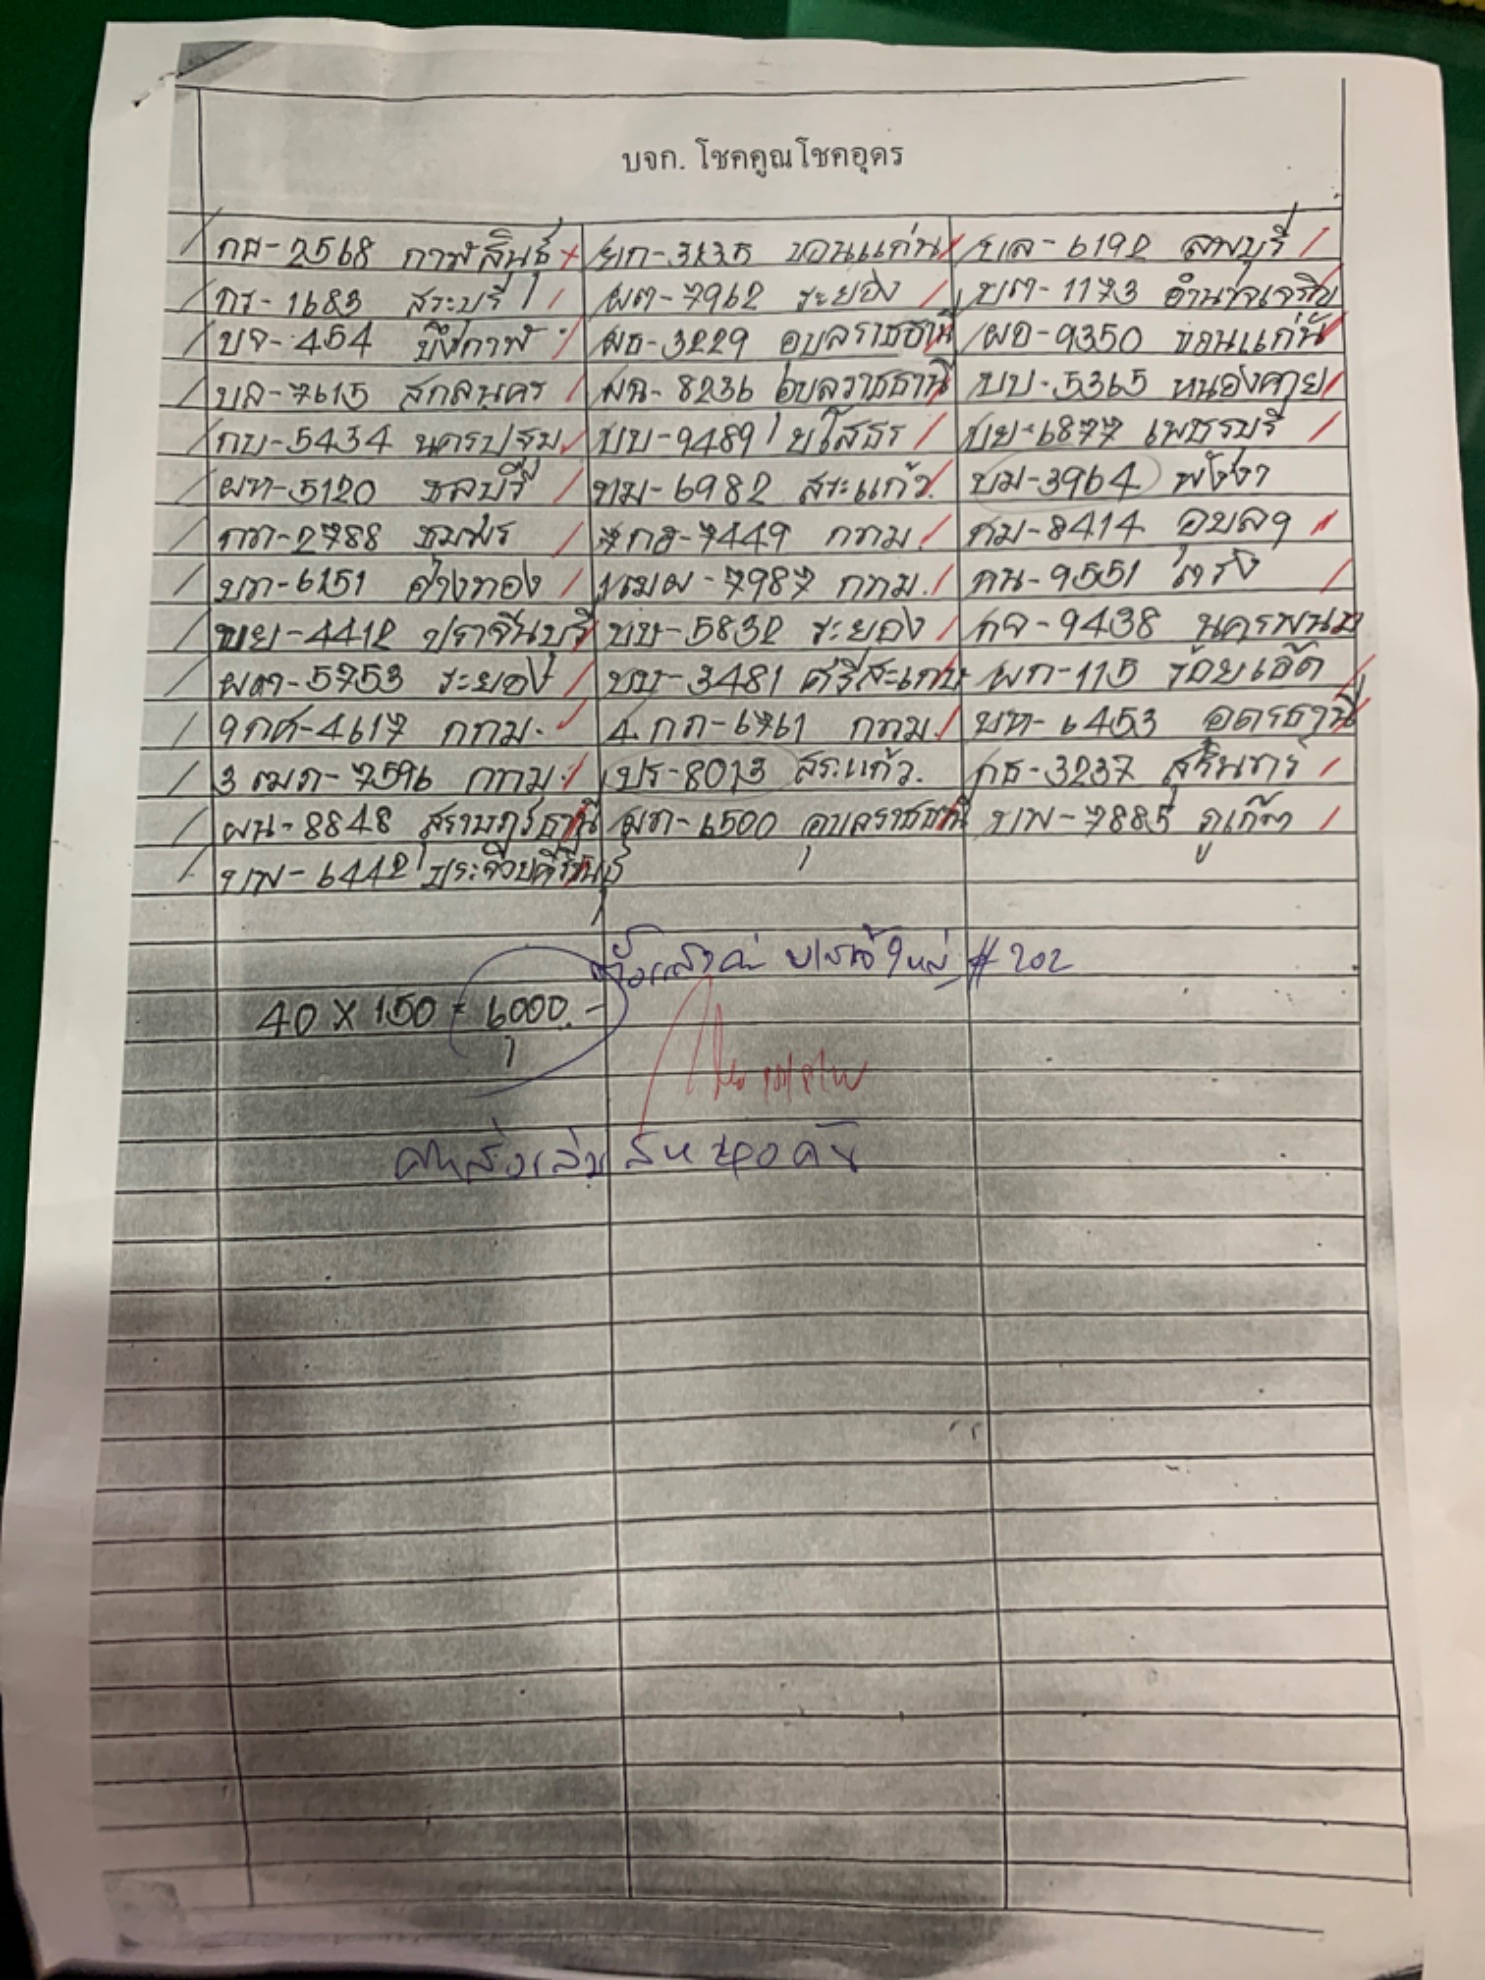 บจก. โชคคูณโชคอุดร
กผ-2568 กาฬสินธุ์ ยก-3235 ขอนแก่น บล-6192 ลพบุรี
กร-1683 สระบุรี ผต-7962 ระยอง บต-1173 อำนาจเจริญ
บจ-454 บึงกาฬ ผธ-3229 อุบลราชธานี ผอ-9350 ขอนแก่น
บล-7615 สกลนคร ผฉ-8236 อุบลราชธานี บป-5365 หนองคาย
กบ-5434 นครปฐม บบ-9489 ยโสธร บย-6877 เพชรบุรี
ผท-5120 ชลบุรี ทม-6982 สระแก้ว บม-3964 พังงา
กท-2788 ชุมพร 7กฮ-7449 กทม. กม-8414 อุบลฯ
บท-6151 อ่างทอง 1ฒผ-7987 กทม. กน-9551 ตรัง
ขย-4412 ปราจีนบุรี ขบ-5832 ระยอง กจ-9438 นครพนม
ผต-5753 ระยอง บบ-3481 ศรีสะเกษ ผก-115 ร้อยเอ็ด
9กศ-4617 กทม. 4กภ-6761 กทม. บห-6453 อุดรธานี
3ฒภ-7596 กทม. ปร-8013 สระแก้ว. กธ-3237 สุรินทร์
ผน-8848 สุราษฎร์ธานี ผท-6500 อุบลราชธานี บพ-7885 ภูเก็ต
บพ-6442 ประจวบคีรีขันธ์
#202
40 X 150 = 6000.-